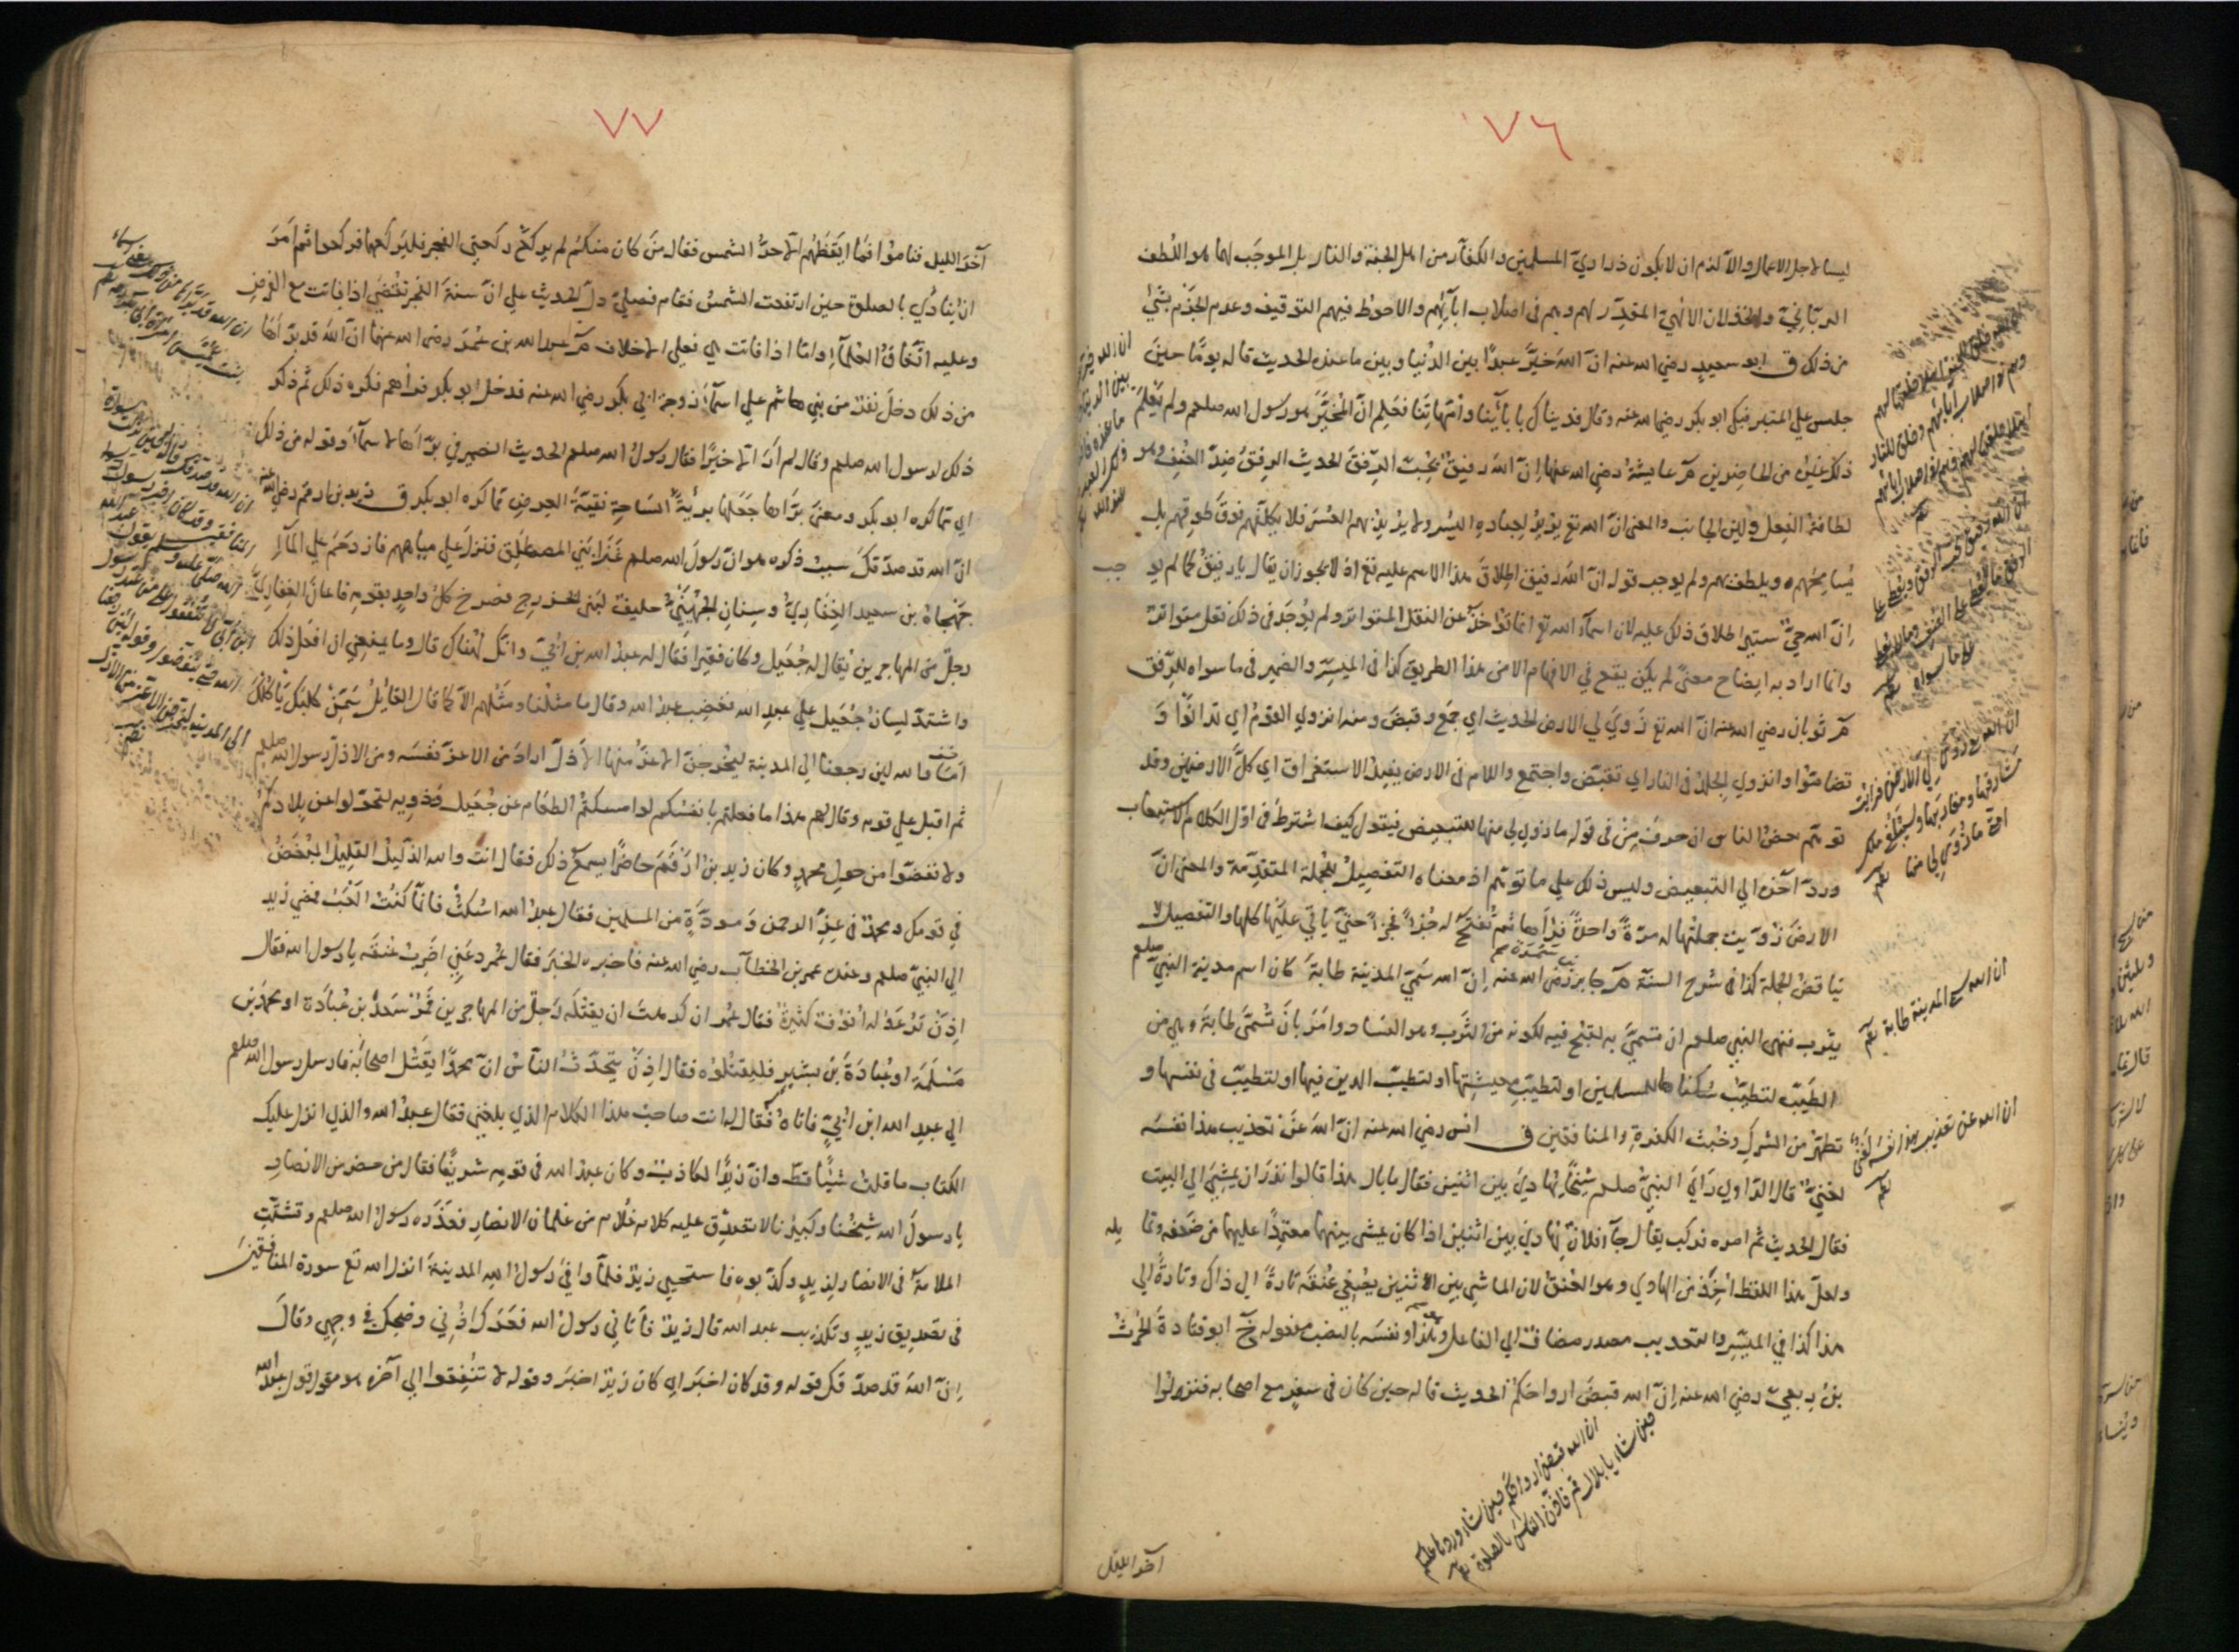 ٧٦
ليسا لاجل الاعمال والا لزم ان لا يكون ذراري المسلمين والكفار من اهل الجنة والنار بل الموجب لهما هو اللطف
الربانيّ والخذلان الالهيّ المقدّر لهم وهم في اصلاب ابائهم والاحوط فيهم التوقيف وعدم الجزم بشئ
من ذلك ق ابو سعيد رضي الله عنه انّ الله خيّر عبدًا بين الدنيا وبين ما عنده الحديث قاله يومًا حين
جلس علي المنبر فبكي ابو بكر رضي الله عنه وقال فديناك بابآئنا وامّهاتنا فعلم انّ المخيّر هو رسول الله صلعم ولم يعلم
ذلك غيره من الحاضرين م عايشة رضي الله عنها انّ الله رفيق يحبّ الرفق الحديث الرفق ضدّ العنف وهو
لطافة الفعل ولين الجانب والمعنى انّ الله تع يريد بعباده اليسر ولا يريد بهم العسر فلا يكلّفهم فوق طوقهم بل
يسامحهم ويلطف بهم ولم يوجب قوله انّ الله رفيق اطلاق هذا الاسم عليه تع اذ لا يجوز ان يقال يا رفيق كما لم يو
جب
انّ الله حيّ ستير اطلاق ذلك عليه لان اسماء الله تع انما تؤخذ عن النقل المتواتر ولم يوجد في ذلك نقل متواتر
وانما اراد به ايضاح معنى لم يكن يقع في الافهام الا من هذا الطريق كذا في الميسّر والضمير في ما سواه للرفق
م ثوبان رضي الله عنه انّ الله تع زوي لي الارض الحديث اي جمع وقبض ومنه انزوي القوم اي تدانوا و
تضامّوا وانزوي الجلد في النار اي تقبّض واجتمع واللام في الارض يفيد الاستغراق اي كلّ الارضين وقد
توهّم بعض الناس ان حرف من في قوله ما زوي لي منها للتبعيض فيقول كيف اشترط في اوّل الكلام الاستيعاب
وردّ آخره الي التبعيض وليس ذلك علي ما توهّم اذ معناه التفصيل للجملة المتقدّمة والمعنى انّ
الارض زويت جملتها له مرّة واحدة فرآها ثم تفتح له جزأ فجزأ حتي ياتي عليها كلها والتفصيل لا
يناقض الجملة كذا في شرح السنة م جابر رضي الله عنه انّ الله سمّي المدينة طابة كان اسم مدينة النبي صلعم
يثرب فنهى النبي صلعم ان تسمّي به لقبح فيه لكونه من الثرب وهو الفساد وامر بان تسمّى طابة وهي من
الطيّب لتطيّب سكّانها المسلمين او لتطيّب معيشتها او لتطيب الدين فيها او لتطيّب في نفسها و
تطهّر من الشرك وخبث الكفرة والمنافقين ق انس رضي الله عنه انّ الله عن تعذيب هذا نفسه
لغنيّ قال الراوي رأي النبيّ صلعم شيخًا يهادي بين اثنين فقال ما بال هذا قالوا نذر ان يمشي الي البيت
فقال الحديث ثم امره فركب يقال جآ فلان يهادي بين اثنين اذا كان يمشي بينهما معتمدًا عليهما من ضعفه وتما
يله
ولعلّ هذا اللفظ اخذ من الهادي وهو العنق لان الماشي بين الاثنين يضع عنقه تارة الي ذاك وتارة الي
هذا كذا في الميسّر والتعذيب مصدر مضاف الي الفاعل وهو هذا ونفسه بالنصب مفعوله خ ابو قتادة الحرث
بن ربعي رضي الله عنه انّ الله قبض ارواحكم الحديث قاله حين كان في سفر مع اصحابه فنزلوا
انّ الله سمّي المدينة طابة
ان الله عن تعذيب هذا نفسه لغنيّ
ان الله قبض ارواحكم حين شاء وردها عليكم
حين شاء يا بلال قم فاذّن الناس بالصلوة
آخر الليل
٧٧
آخر الليل فناموا فما ايقظهم الا حرّ الشمس فقال من كان منكم لم يركع ركعتي الفجر فليركعهما فركعوا ثم امر
ان ينادي بالصلوة حين ارتفعت الشمس فقام فصليّ دلّ الحديث علي انّ سنة الفجر تقضي اذا فاتت مع الفرض
وعليه اتفاق العلمآء وامّا اذا فاتت هي فعلي الاخلاف م عبد الله بن عمر رضي الله عنهما انّ الله قد برّأها
من ذلك دخل نفر من بني هاشم علي اسمآء زوجة ابي بكر رضي الله عنه فدخل ابو بكر فرآهم فكره ذلك ثم ذكر
ذلك لرسول الله صلعم وقال لم أر الا خيرًا فقال رسول الله صلعم الحديث الضمير في برّأها لاسمآء وقوله من ذلك
اي مما كره ابو بكر ومعنى برّأها جعلها بريئة الساحة نقيّة العرض مما كره ابو بكر ق زيد بن ارقم رضي الله عنه
انّ الله قد صدّقك سبب ذكره هو انّ رسول الله صلعم غزا بني المصطلق فنزل علي مياههم فازدحم علي المآء
جهجاه بن سعيد الغفاريّ وسنان الجهنيّ حليف لبني الخزرج فصرخ كلّ واحد بقومه فاعان الغفاريّ
رجل من المهاجرين يقال له جعيل وكان فقيرا فقال له عبد الله بن ابيّ وانك لهناك قال وما يمنعني ان افعل ذلك
واشتدّ لسان جعيل علي عبد الله فغضب عبد الله وقال ما مثلنا ومثلهم الا كما قال القائل سمّن كلبك يأكلك
امّا والله لئن رجعنا الي المدينة ليخرجنّ الاعزّ منها الاذلّ اراد من الاعزّ نفسه ومن الاذلّ رسول الله صلعم
ثم اقبل علي قومه وقال لهم هذا ما فعلتم بانفسكم لو امسكتم الطعام عن جعيل وذويه لتحوّلوا عن بلادكم
ولا تنفقوا من حول محمد وكان زيد بن ارقم حاضرًا يسمع ذلك فقال انت والله الذليل القليل المبغض
في قومك ومحمد في عزّ الرحمن ومودّة من المسلمين فقال عبد الله اسكت فانما كنت العب فمضي زيد
الي النبيّ صلعم وعنده عمر بن الخطاب رضي الله عنه فاخبره الخبر فقال عمر دعني اضرب عنقه يا رسول الله فقال
اذن ترعد له انوف كثيرة فقال عمر ان كرهت ان يقتله رجل من المهاجرين فمر سعد بن عبادة او محمد بن
مسلمة او عبادة بن بشير فليقتلوه فقال اذن يتحدّث الناس انّ محمدًا يقتل اصحابه فارسل رسول الله صلعم
الي عبد الله ابن ابيّ فاتاه فقال له انت صاحب هذا الكلام الذي بلغني فقال عبد الله والذي انزل عليك
الكتاب ما قلت شيئًا قطّ وانّ زيدًا لكاذب وكان عبد الله في قومه شريفًا فقال من حضر من الانصار
يا رسول الله شيخنا وكبيرنا لا تصدّق عليه كلام غلام من غلمان الانصار فعذره رسول الله صلعم وتفشّت
الملامة في الانصار لزيد وكذّبوه فاستحيي زيد فلمّا وافي رسول الله المدينة انزل الله تع سورة المنافقين
في تصديق زيد وتكذيب عبد الله قال زيد فأتاني رسول الله فعرك اذني وضحك في وجهي وقال
انّ الله قد صدّقك قوله وقد كان اخبر اي كان زيد اخبر وقوله لا تنفقوا الي آخره هو مقول قول عبد الله